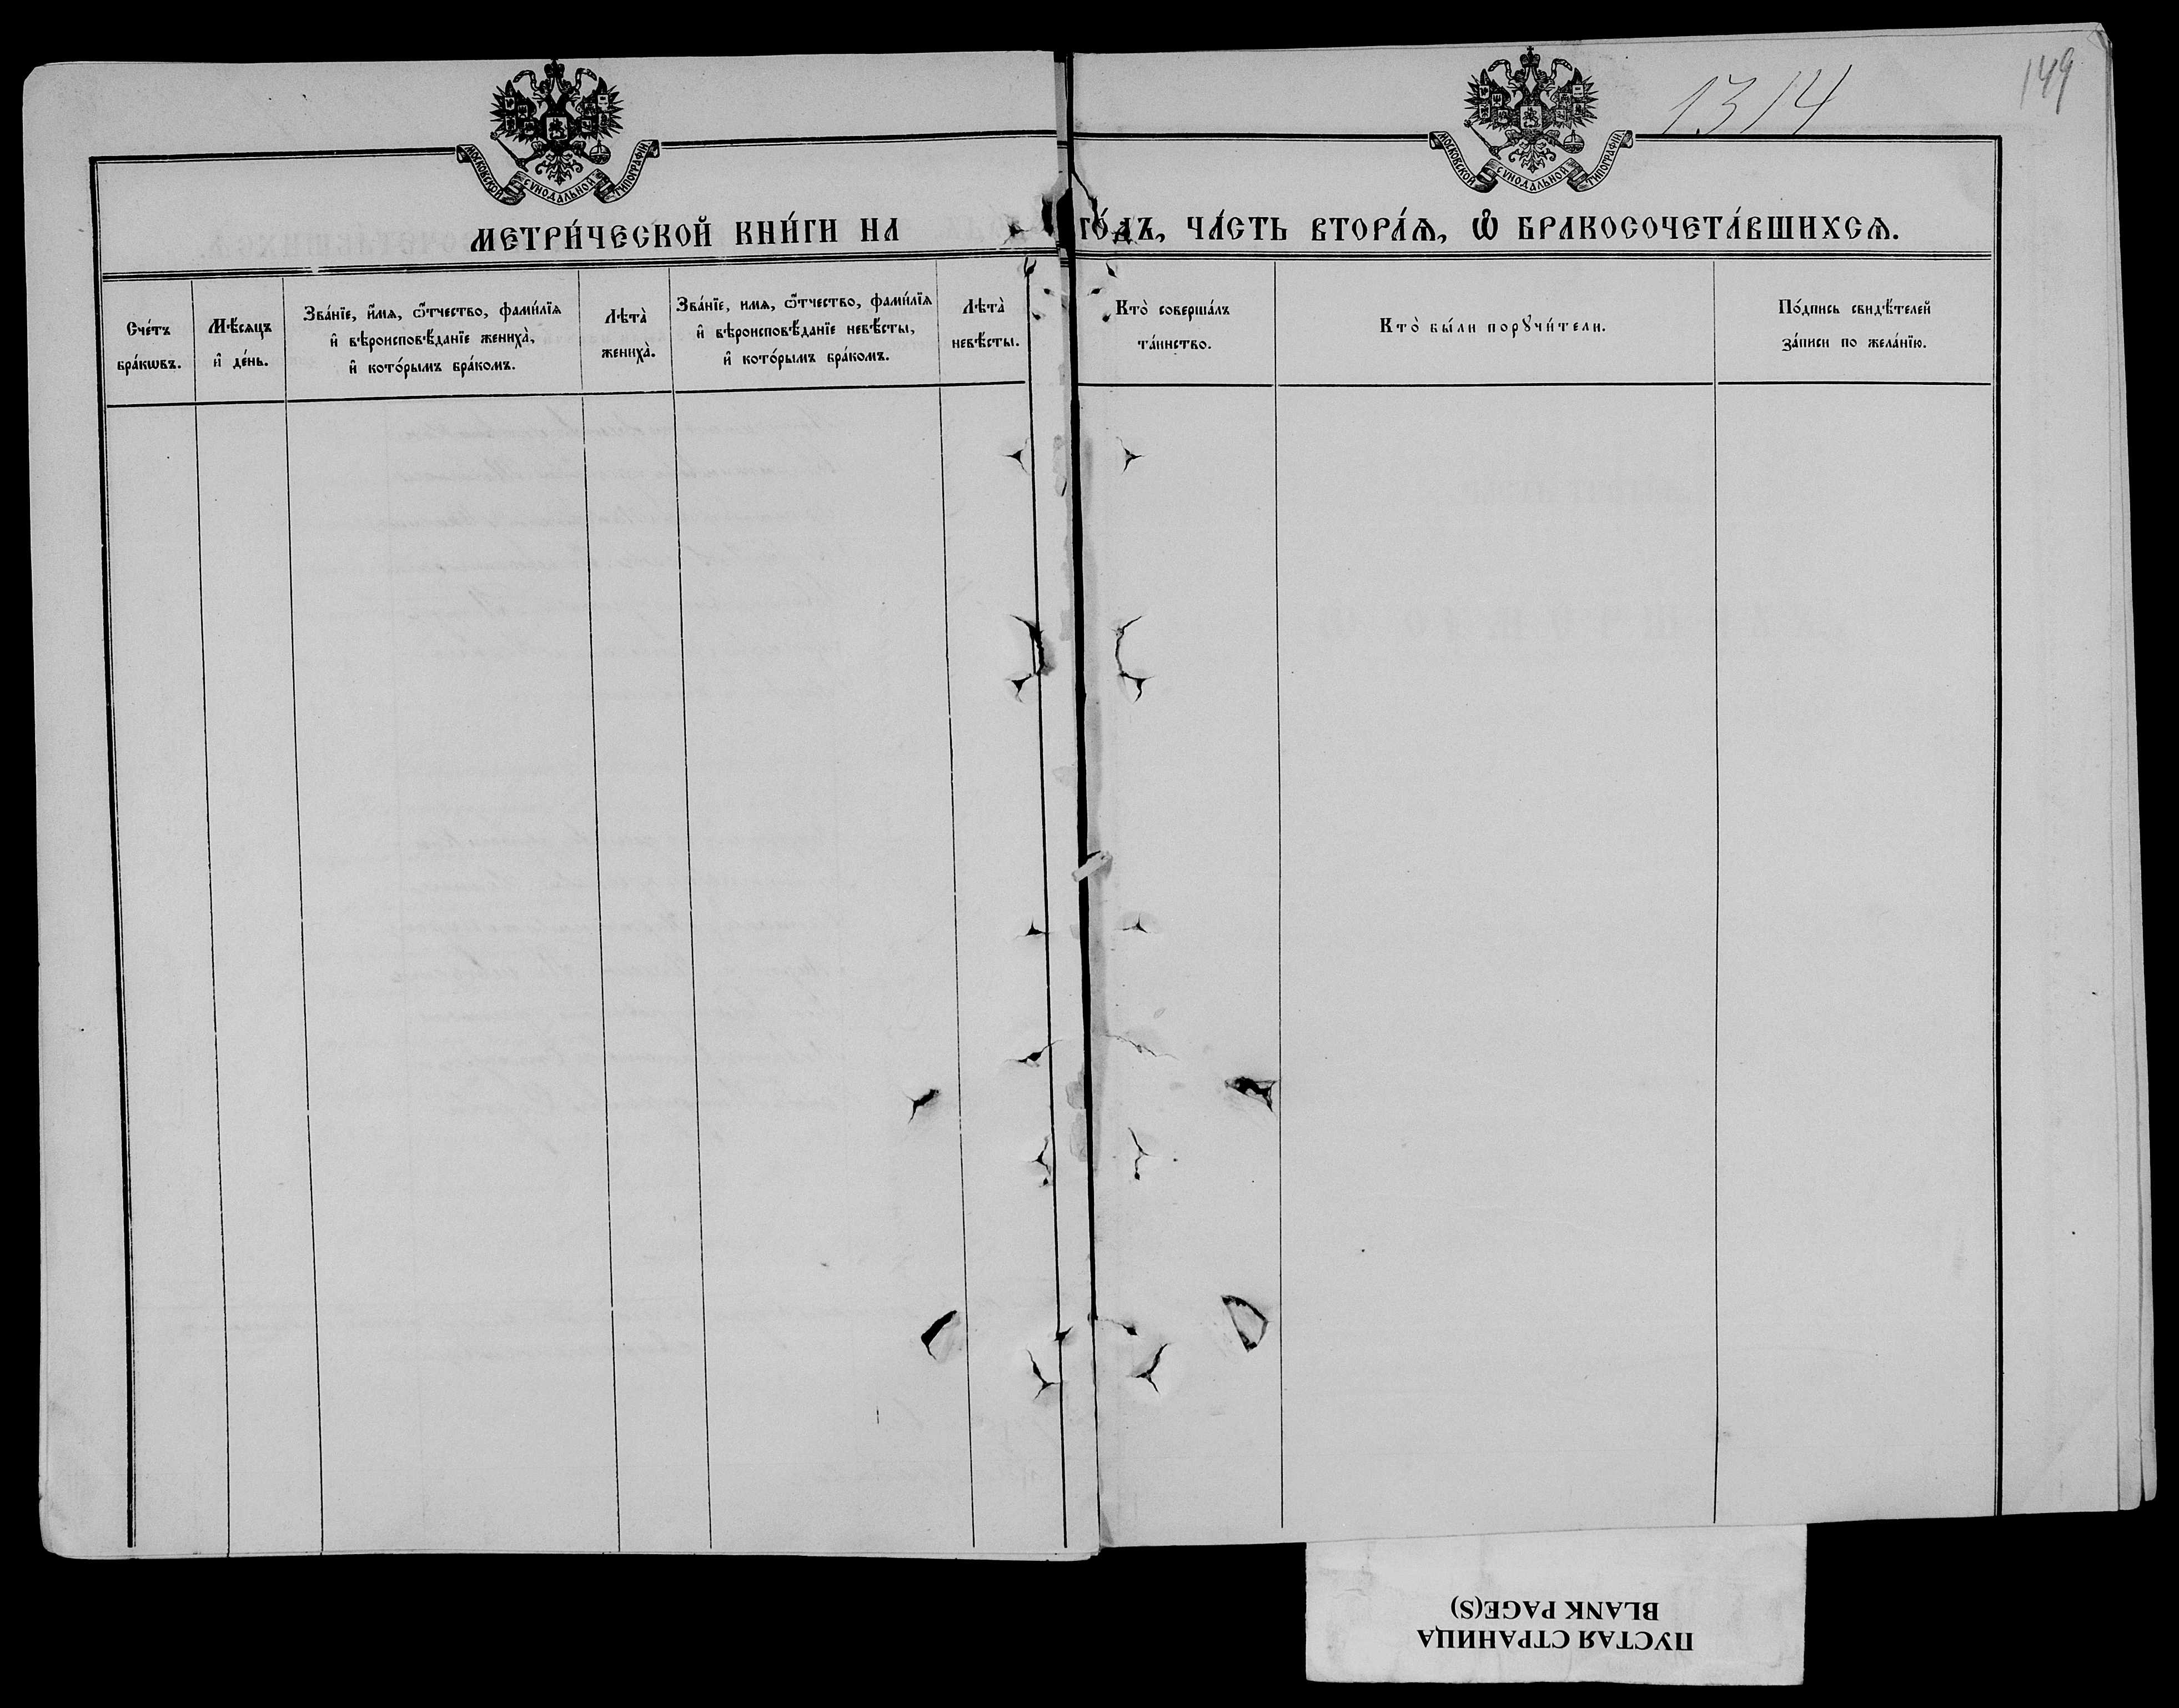 1314
149
МОСКОВСКОЙ СѴНОДАЛЬНОЙ ТИПОГРАФІИ
МОСКОВСКОЙ СѴНОДАЛЬНОЙ ТИПОГРАФІИ
МЕТРИ́ЧЕСКОЙ КНИ́ГИ НА ГО́ДЪ, ЧА́СТЬ ВТОРА́Ѧ, Ѿ БРАКОСОЧЕТА́ВШИХСѦ.
Сче́тъ
бра́кѡвъ.
Мѣ́сяцъ
и҆ де́нь.
Зва́нїе, и҆́мя, ѻ҆́тчество, фами́лїя
и҆ вѣроисповѣ́данїе жениха̀,
и҆ кото́рымъ бра́комъ.
Лѣта̀
жениха̀.
Зва́нїе, имя, ѻ҆́тчество, фами́лїя
и҆ вѣроисповѣ́данїе невѣ́сты,
и҆ кото́рымъ бра́комъ.
Лѣта̀
невѣ́сты.
Кто̀ соверша́лъ
та́инство.
Кто̀ бы́ли порꙋчи́тели.
По́дпись свидѣ́телей
за́писи по жела́нїю.
ПУСТАЯ СТРАНИЦА
BLANK PAGE(S)